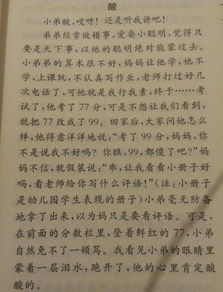 酸
小弟酸,哎呀!还是听我讲吧!
弟弟经常做错事,爱耍小聪明,觉得只
要是天下事,以他的聪明绝对能蒙过去。
小弟弟的算术很不好,妈妈让他学,他不
学,上课玩,不认真写作业,老师打过好几
次电话了,可他就是我行我素,终于……考
试了,他考了77分,可是不想让我们看到,
就把77改成了99。回家后,大家问他怎么
样,他得意洋洋地说:“考了99分,妈妈,你
不是说我不好吗?你瞧,99,都傻了吧?”妈
妈不信,就假装说:“乖,让我看看小册子好
吗,看老师给你写什么评语!”(注:小册子
是幼儿园学生表现的册子)小弟毫无防备
地拿了出来,以为妈只是要看评语。可是,
在前面的分数栏里,登着鲜红的77,小弟
自然免不了一顿骂。我看见小弟的眼睛里
蒙着一层泪水,跑开了,他的心里肯定酸
酸的。